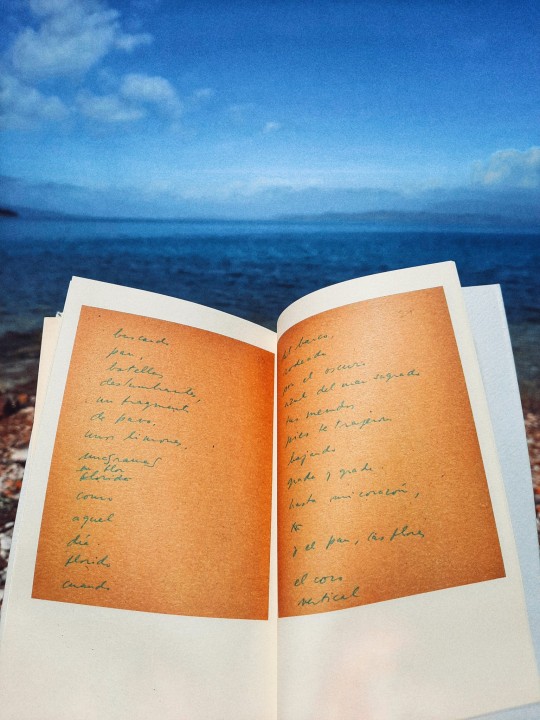 buscando
pan,
botellas
deslumbrantes,
un fragmento
de pavo,
unos limones,
en flor
florido
como
aquel
día.
florido
cuando
el barco,
rodeado
por el oscuro
azul del mar sagrado
tus menudos
pies te trajeron
bajando
grada y grada
hasta mi corazón,
y el pan, las flores
el coro
vertical